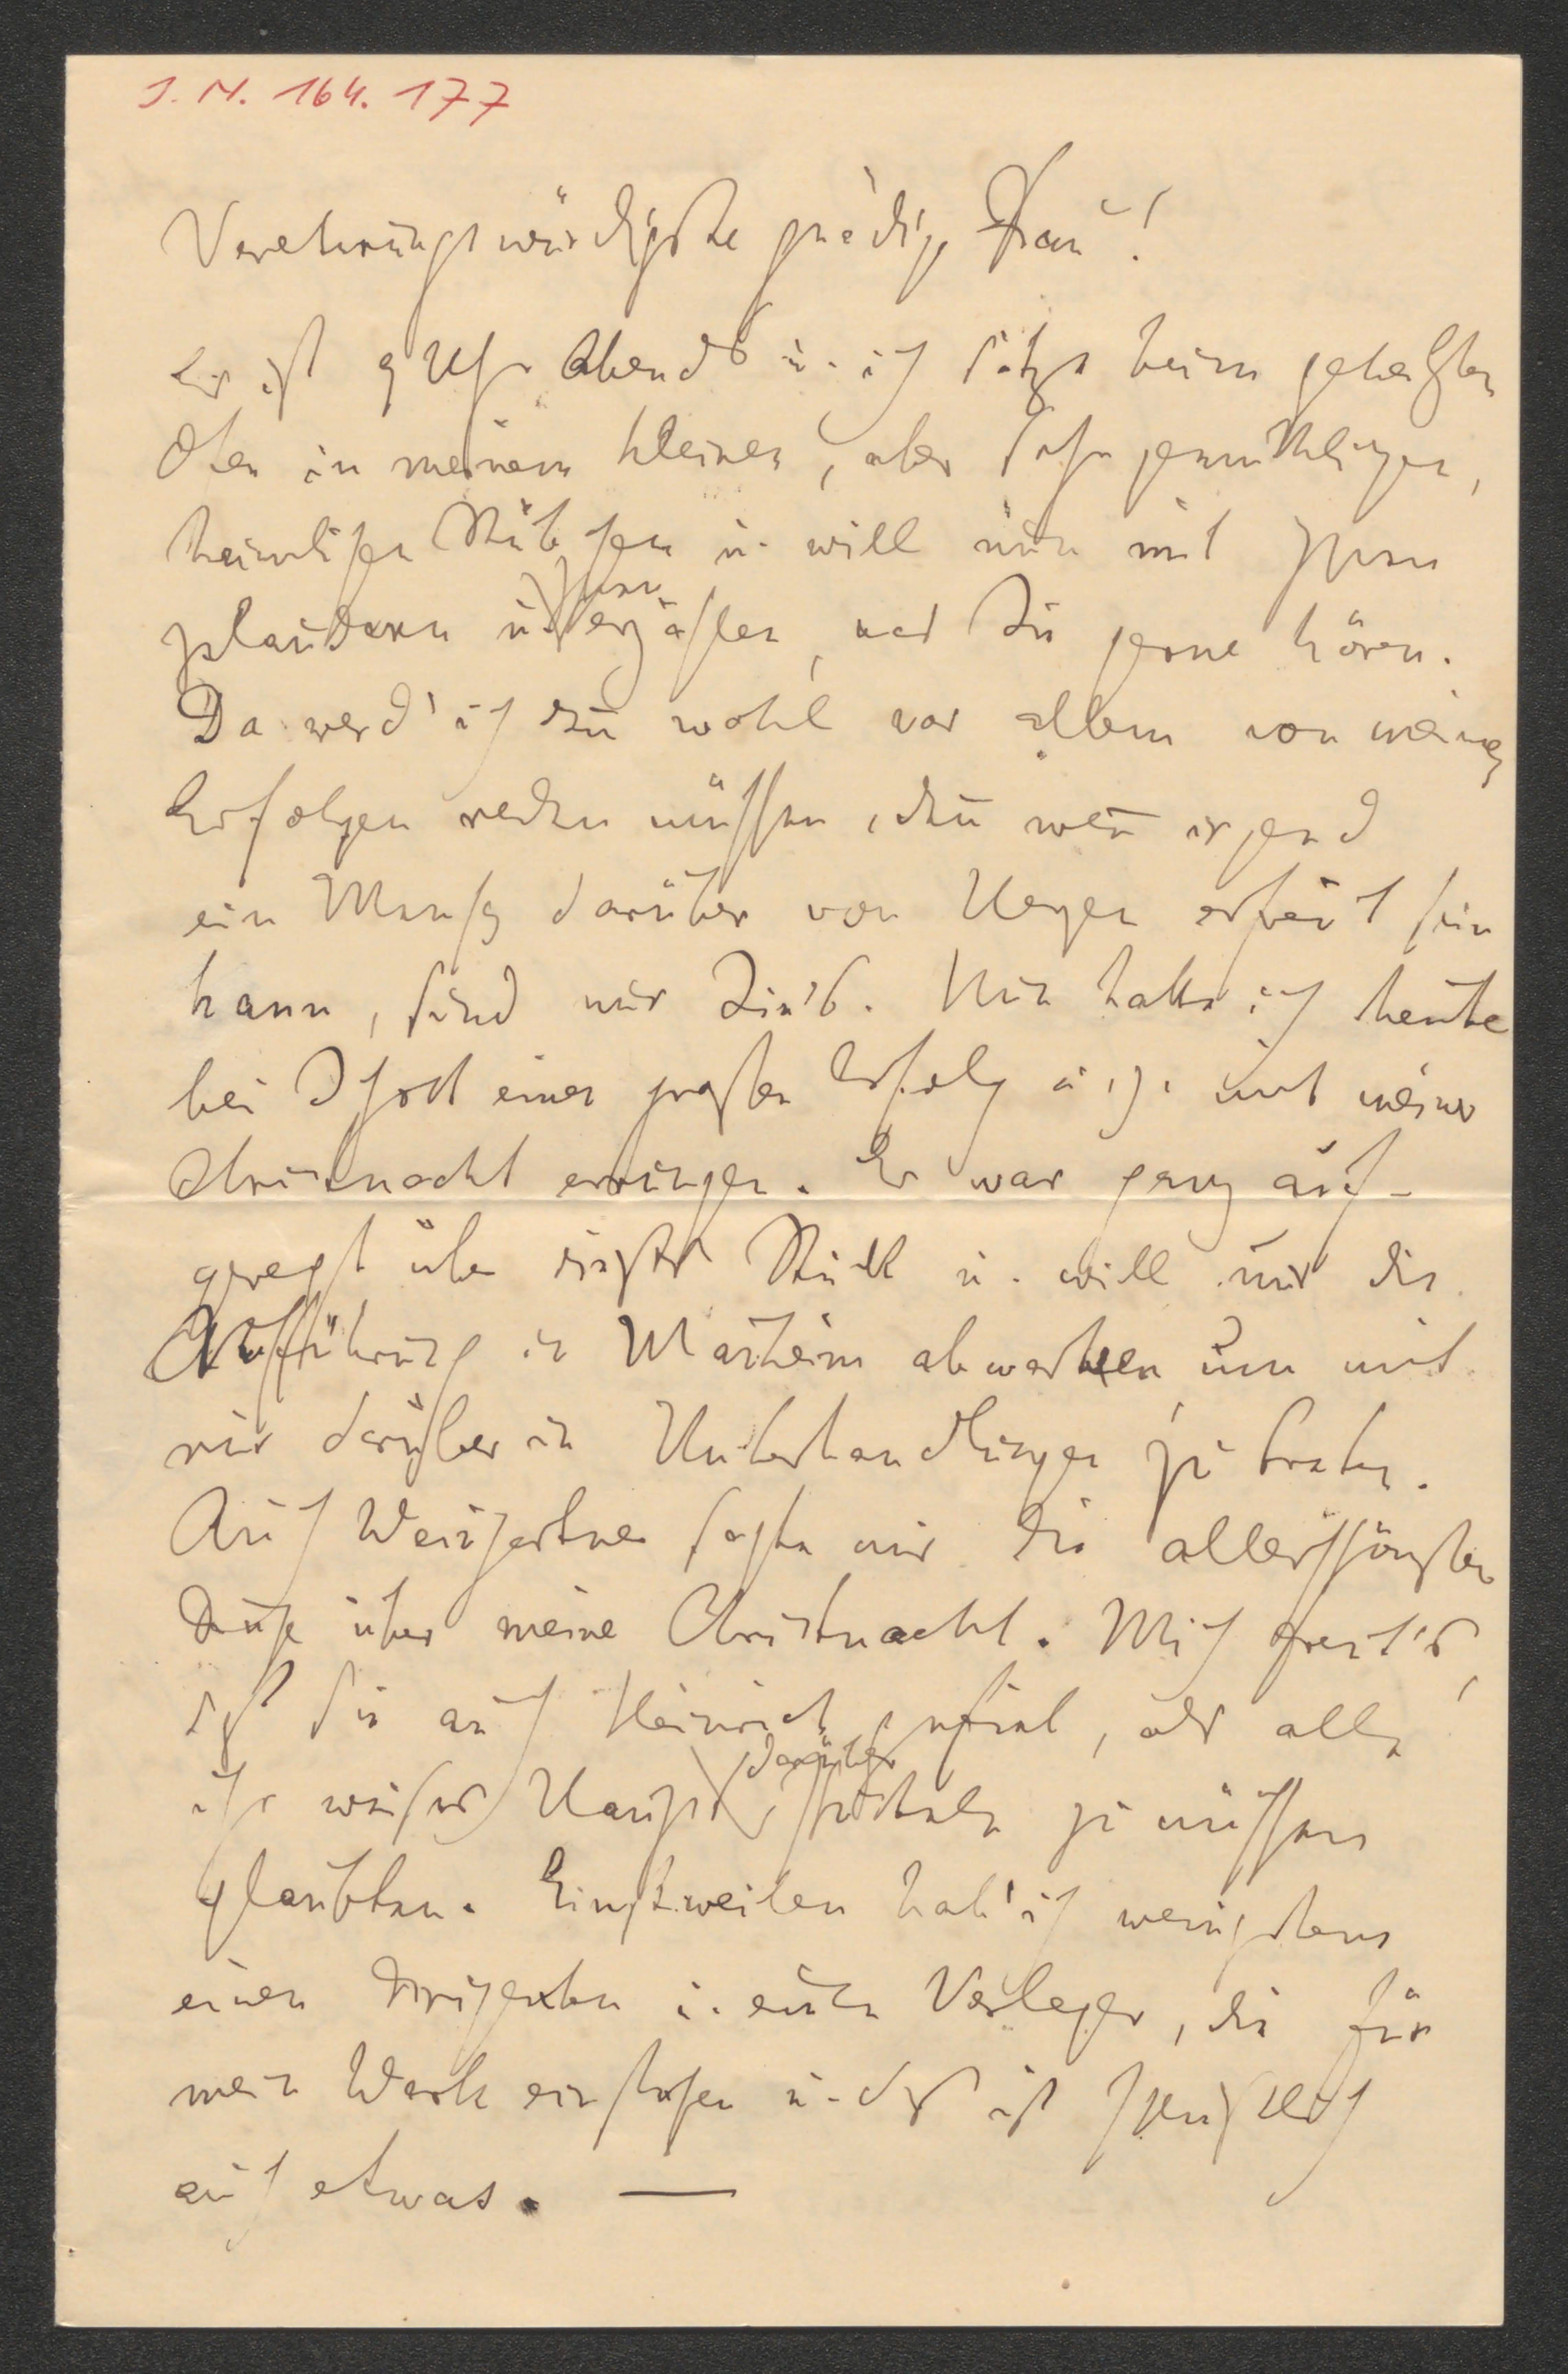 I. N. 164. 177
Verehrungswürdigste gnädige Frau!
Es ist 9 Uhr Abends u. ich sitze beim geheizten
Ofen in meinem kleinen, aber sehr gemüthlichen,
heimlichen Stübchen u. will nun mit Ihnen
plaudern u. Ihnen erzählen, was Sie gerne hören.
Da werd' ich deñ wohl vor allem von meinen
Erfolgen reden müssen, deñ weñ irgend
ein Mensch darüber von Herzen erfreut sein
kann, sind nur Sie's. Nun hatte ich heute
bei Schott einen großen Erfolg u. z. mit meiner
Christnacht errungen. Er war ganz auf-
geregt über dieses Stück u. will nur die
Aufführung in Mañheim abwarten um mit
mir darüber in Unterhandlungen zu treten.
Auch Weingartner sagte mir die allerschönsten
Dinge über meine Christnacht. Mich freut's,
daß sie auch Heinrich gefiel, als alle
ihr weises Haupt darüber schütteln zu müssen
glaubten. Einstweilen hab' ich wenigstens
einen Dirigenten u. einen Verleger, die für
mein Werk einstehen u. das ist schließlich
auch etwas. —